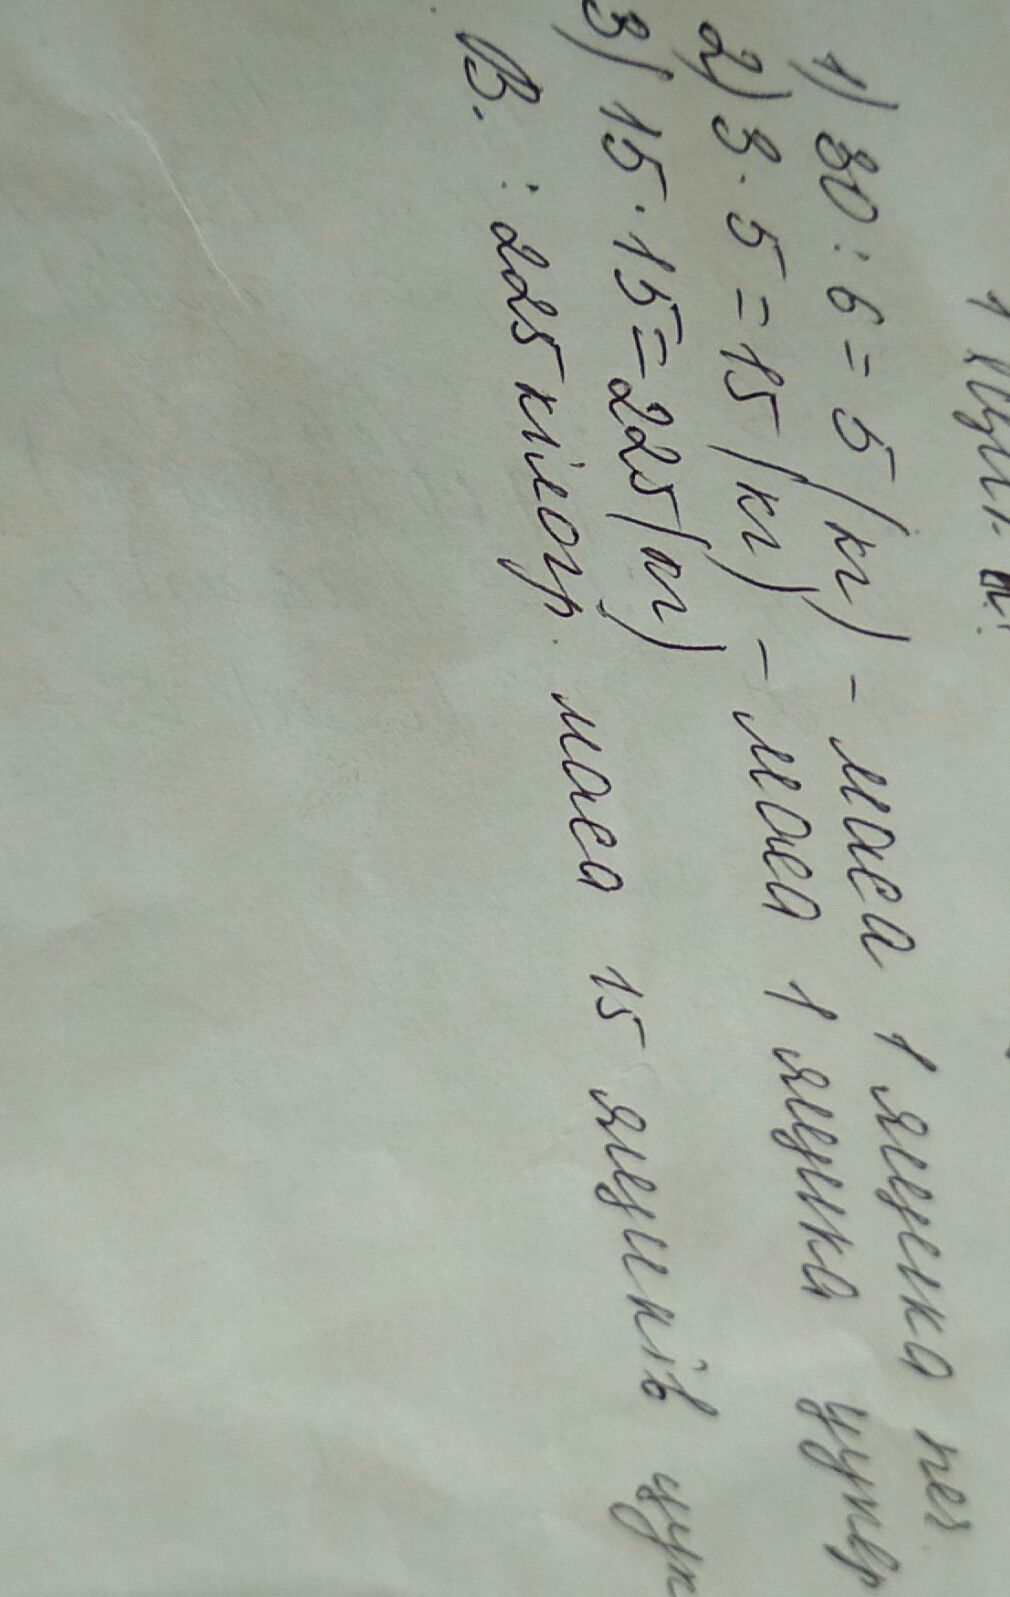 1) 30 : 6 = 5 (кг) - маса 1 ящика печ.
2) 3 · 5 = 15 (кг) - маса 1 ящика
3) 15 · 15 = 225 (кг)
В. : 225 кілогр. маса 15 ящиків цук